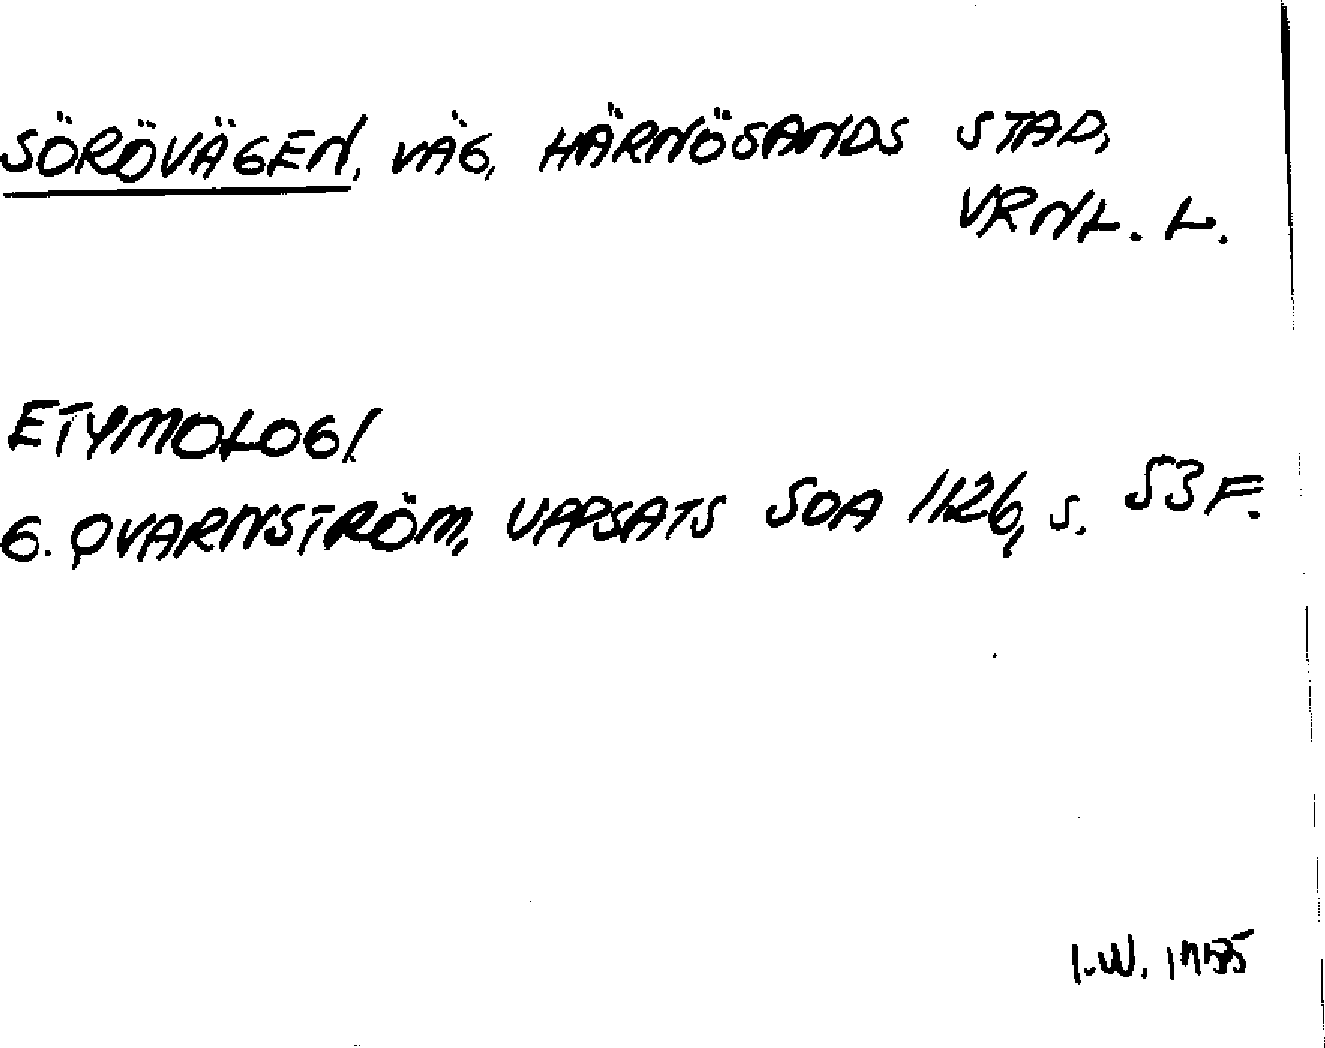 SÖRÖVÄGEN, VÄG, HÄRNÖSANDS STAD,
VRNL. L.
ETYMOLOGI
G. QVARNSTRÖM, UPPSATS SOA 1126, s. 53 F.
I.W. 1985